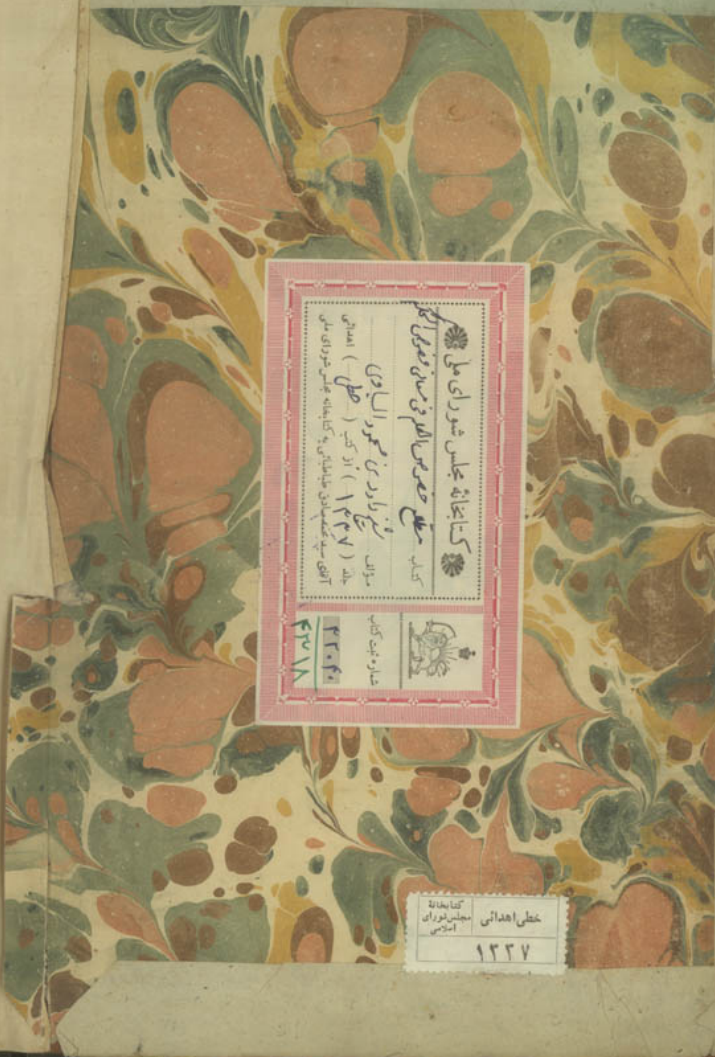 کتابخانه مجلس شورای ملی
کتاب مطلع خصوص الکلم فی معانی فصوص الحکم
مؤلف شیخ داود بن محمود الساوی
جلد ( ۱۳۳۷ ) از کتب ( خطی ) اهدائی
آقای سید محمد صادق طباطبائی به کتابخانه مجلس شورای ملی
شماره ثبت کتاب
۴۲۰۴۰
۴۳۷۱۸
خطی اهدائی
کتابخانهٔ
مجلس شورای
اسلامی
۱۳۳۷